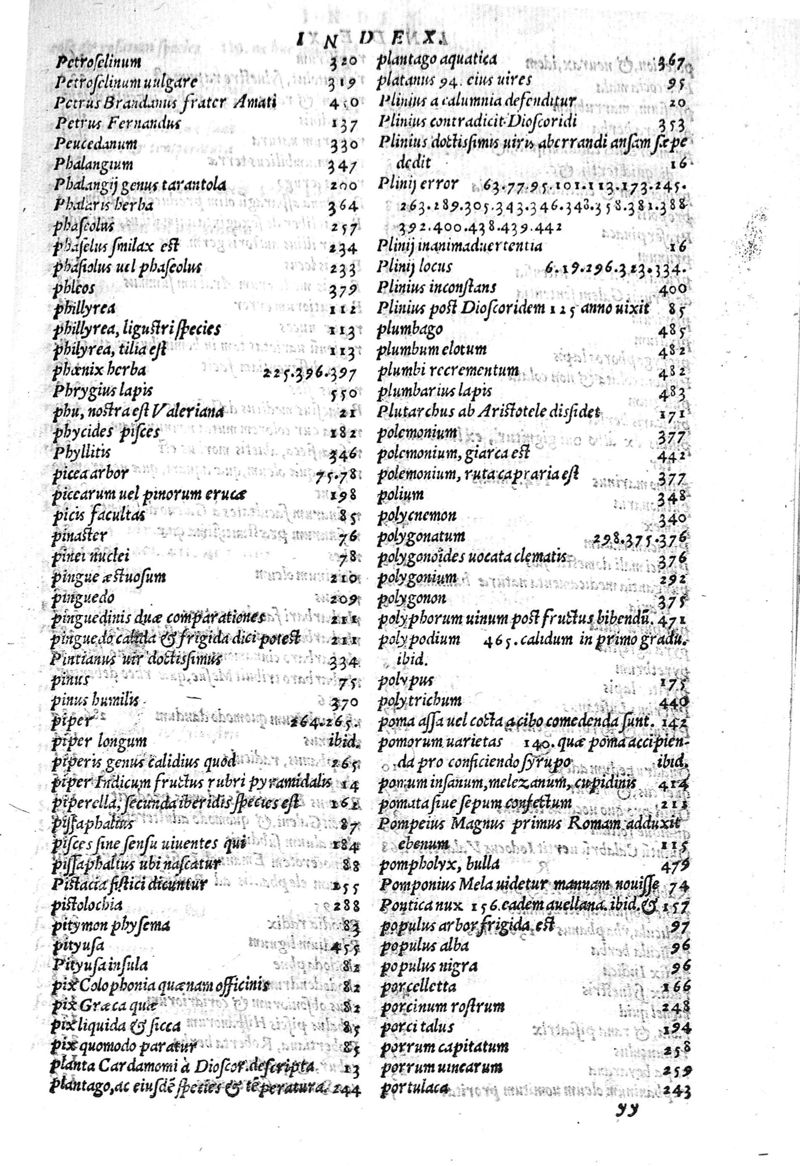 INDEX.
Petroſelinum 320
Petroſelinum uulgare 319
Petrus Brandanus frater Amati 450
Petrus Fernandus 137
Peucedanum 330
Phalangium 347
Phalangij genus tarantola 200
Phalaris herba 364
phaſeolus 257
phaſelus ſmilax eſt 234
phaſiolus uel phaſeolus 233
phleos 379
phillyrea 112
phillyrea, liguſtri ſpecies 113
philyrea, tilia eſt 113
phœnix herba 225.396.397
Phrygius lapis 550
phu, noſtra eſt Valeriana 21
phycides piſces 182
Phyllitis 346
picea arbor 75.78
picearum uel pinorum erucæ 198
picis facultas 85
pinaſter 76
pinei nuclei 78
pingue æſtuoſum 210
pinguedo 209
pinguedinis duæ comparationes 211
pinguedo calida & frigida dici poteſt 211
Pintianus uir doctiſſimus 334
pinus 75
pinus humilis 370
piper 264.265.
piper longum ibid.
piperis genus calidius quod 265
piper Indicum fructus rubri pyramidalis 14
piperella, ſecunda iberidis ſpecies eſt 162
piſſaphaltus 87
piſces ſine ſenſu uiuentes qui 184
piſſaphaltus ubi naſcatur 88
Piſtacia fiſtici dicuntur 155
piſtolochia 288
pitymon phyſema 83
pityuſa 455
Pityuſa inſula 82
pix Colophonia quænam officinis 82
pix Græca quæ 82
pix liquida & ſicca 85
pix quomodo paratur 85
planta Cardamomi à Dioſcor. deſcripta 13
plantago, ac eiuſdẽ ſpecies & tẽperatura. 244
plantago aquatica 367
platanus 94. eius uires 95
Plinius a calumnia defenditur 20
Plinius contradicit Dioſcoridi 353
Plinius doctiſſimis uiris aberrandi anſam ſæpe
dedit 16
Plinij error 63.77.95.101.113.173.245.
263.289.305.343.346.348.358.381.388
392.400.438.439.442
Plinij inanimaduertentia 16
Plinij locus 6.19.296.323.334.
Plinius inconſtans 400
Plinius poſt Dioſcoridem 125 anno uixit 85
plumbago 485
plumbum elotum 482
plumbi recrementum 482
plumbarius lapis 483
Plutarchus ab Ariſtotele diſſidet 171
polemonium 377
polemonium, giarca eſt 442
polemonium, ruta capraria eſt 377
polium 348
polycnemon 340
polygonatum 298.375.376
polygonoides uocata clematis 376
polygonium 292
polygonon 375
polyphorum uinum poſt fructus bibendũ. 471
polypodium 465. calidum in primo gradu.
ibid.
polypus 175
polytrichum 440
poma aſſa uel cocta a cibo comedenda ſunt. 142
pomorum uarietas 140. quæ poma accipien-
da pro conficiendo ſyrupo ibid.
pomum inſanum, melezanum, cupidinis 414
pomata ſiue ſepum confectum 211
Pompeius Magnus primus Romam adduxit
ebenum 115
pompholyx, bulla 479
Pomponius Mela uidetur mannam nouiſſe 74
Pontica nux 156. eadem auellana. ibid. & 157
populus arbor frigida eſt 97
populus alba 96
populus nigra 96
porcelletta 166
porcinum roſtrum 248
porci talus 194
porrum capitatum 258
porrum uinearum 259
portulaca 243
yy